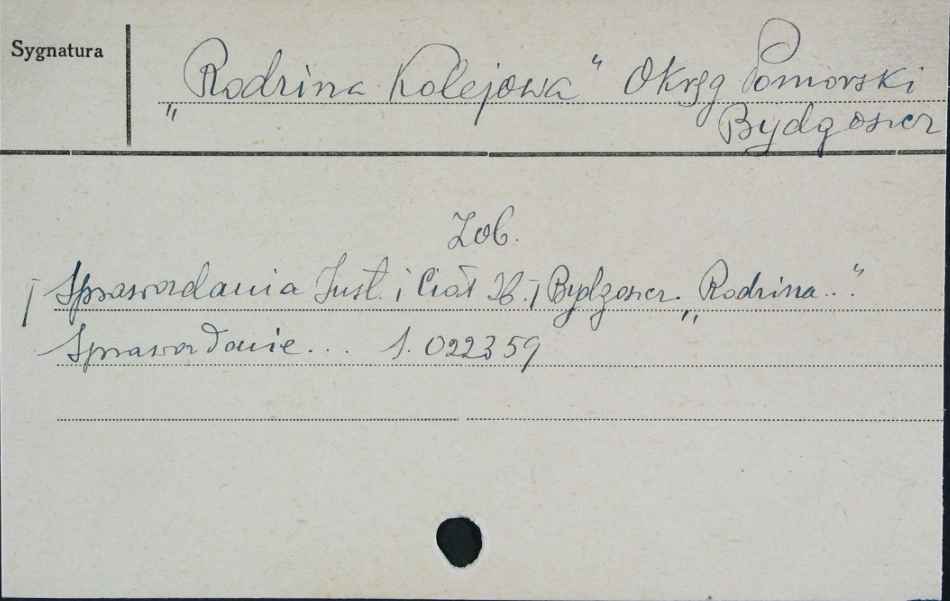 Sygnatura
„Rodzina Kolejowa" Okręg Pomorski
Bydgoszcz
Zob.
[Sprawozdania Inst. i Ciał Zb.] Bydgoszcz. „Rodzina..."
Sprawozdanie... S. 022359